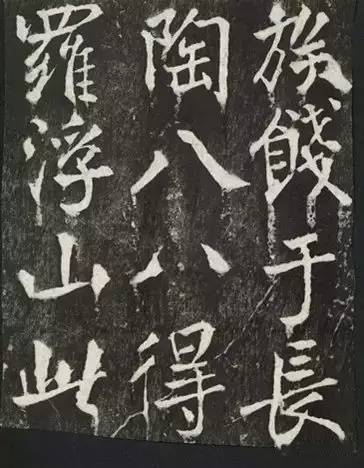 族餞于長
陶八八得
羅浮山此